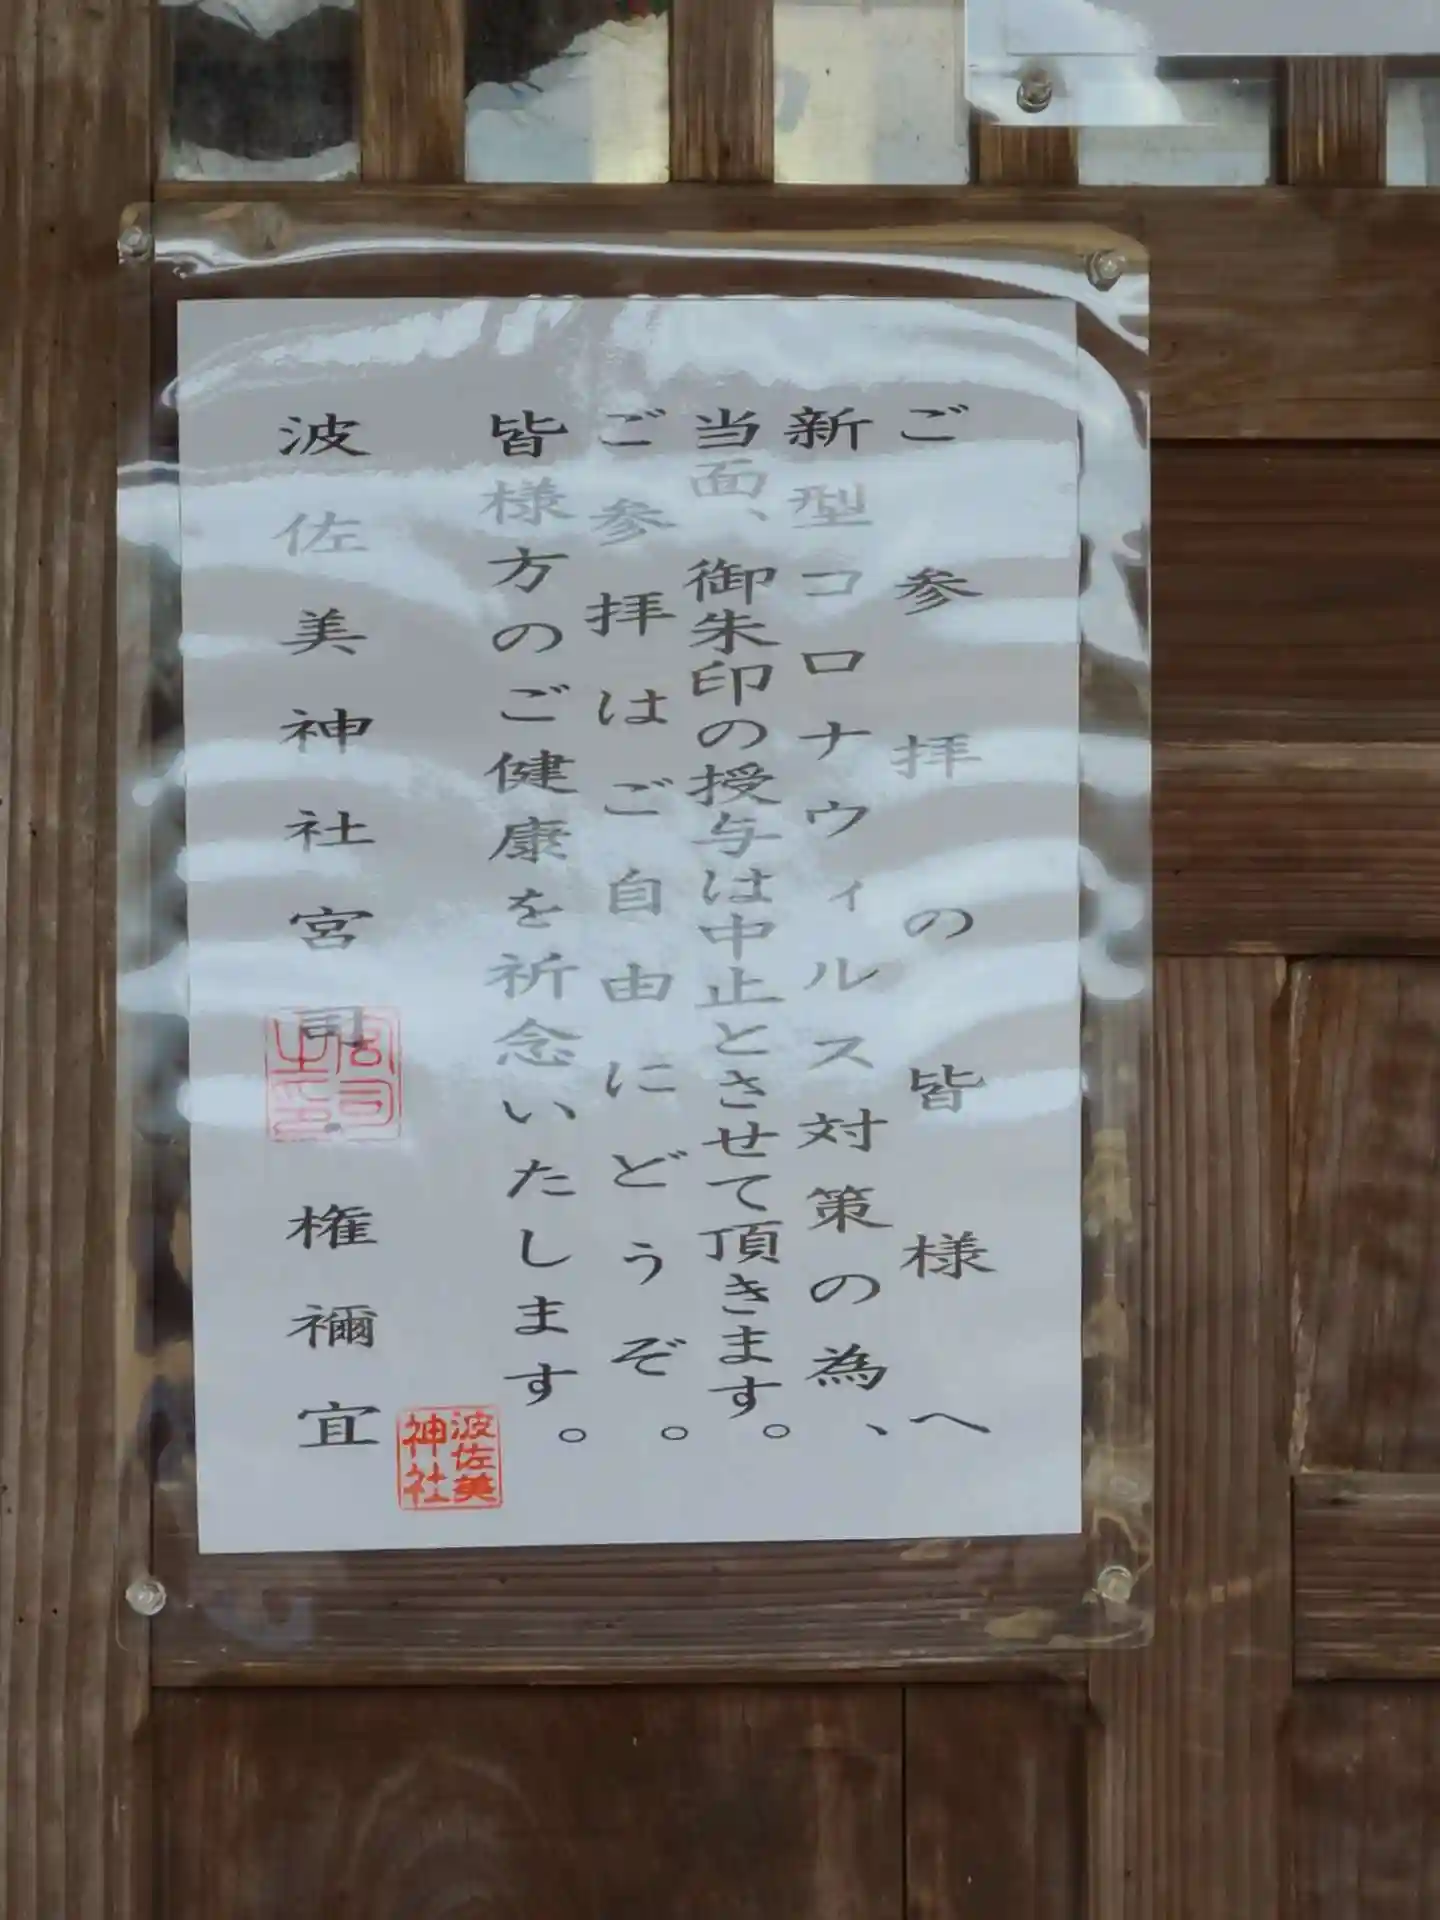 ご参拝の皆様へ
新型コロナウィルス対策の為、
当面、御朱印の授与は中止とさせて頂きます。
ご参拝はご自由にどうぞ。
皆様方のご健康を祈念いたします。
波佐美神社宮司・権禰宜
宮司之印
波佐美神社